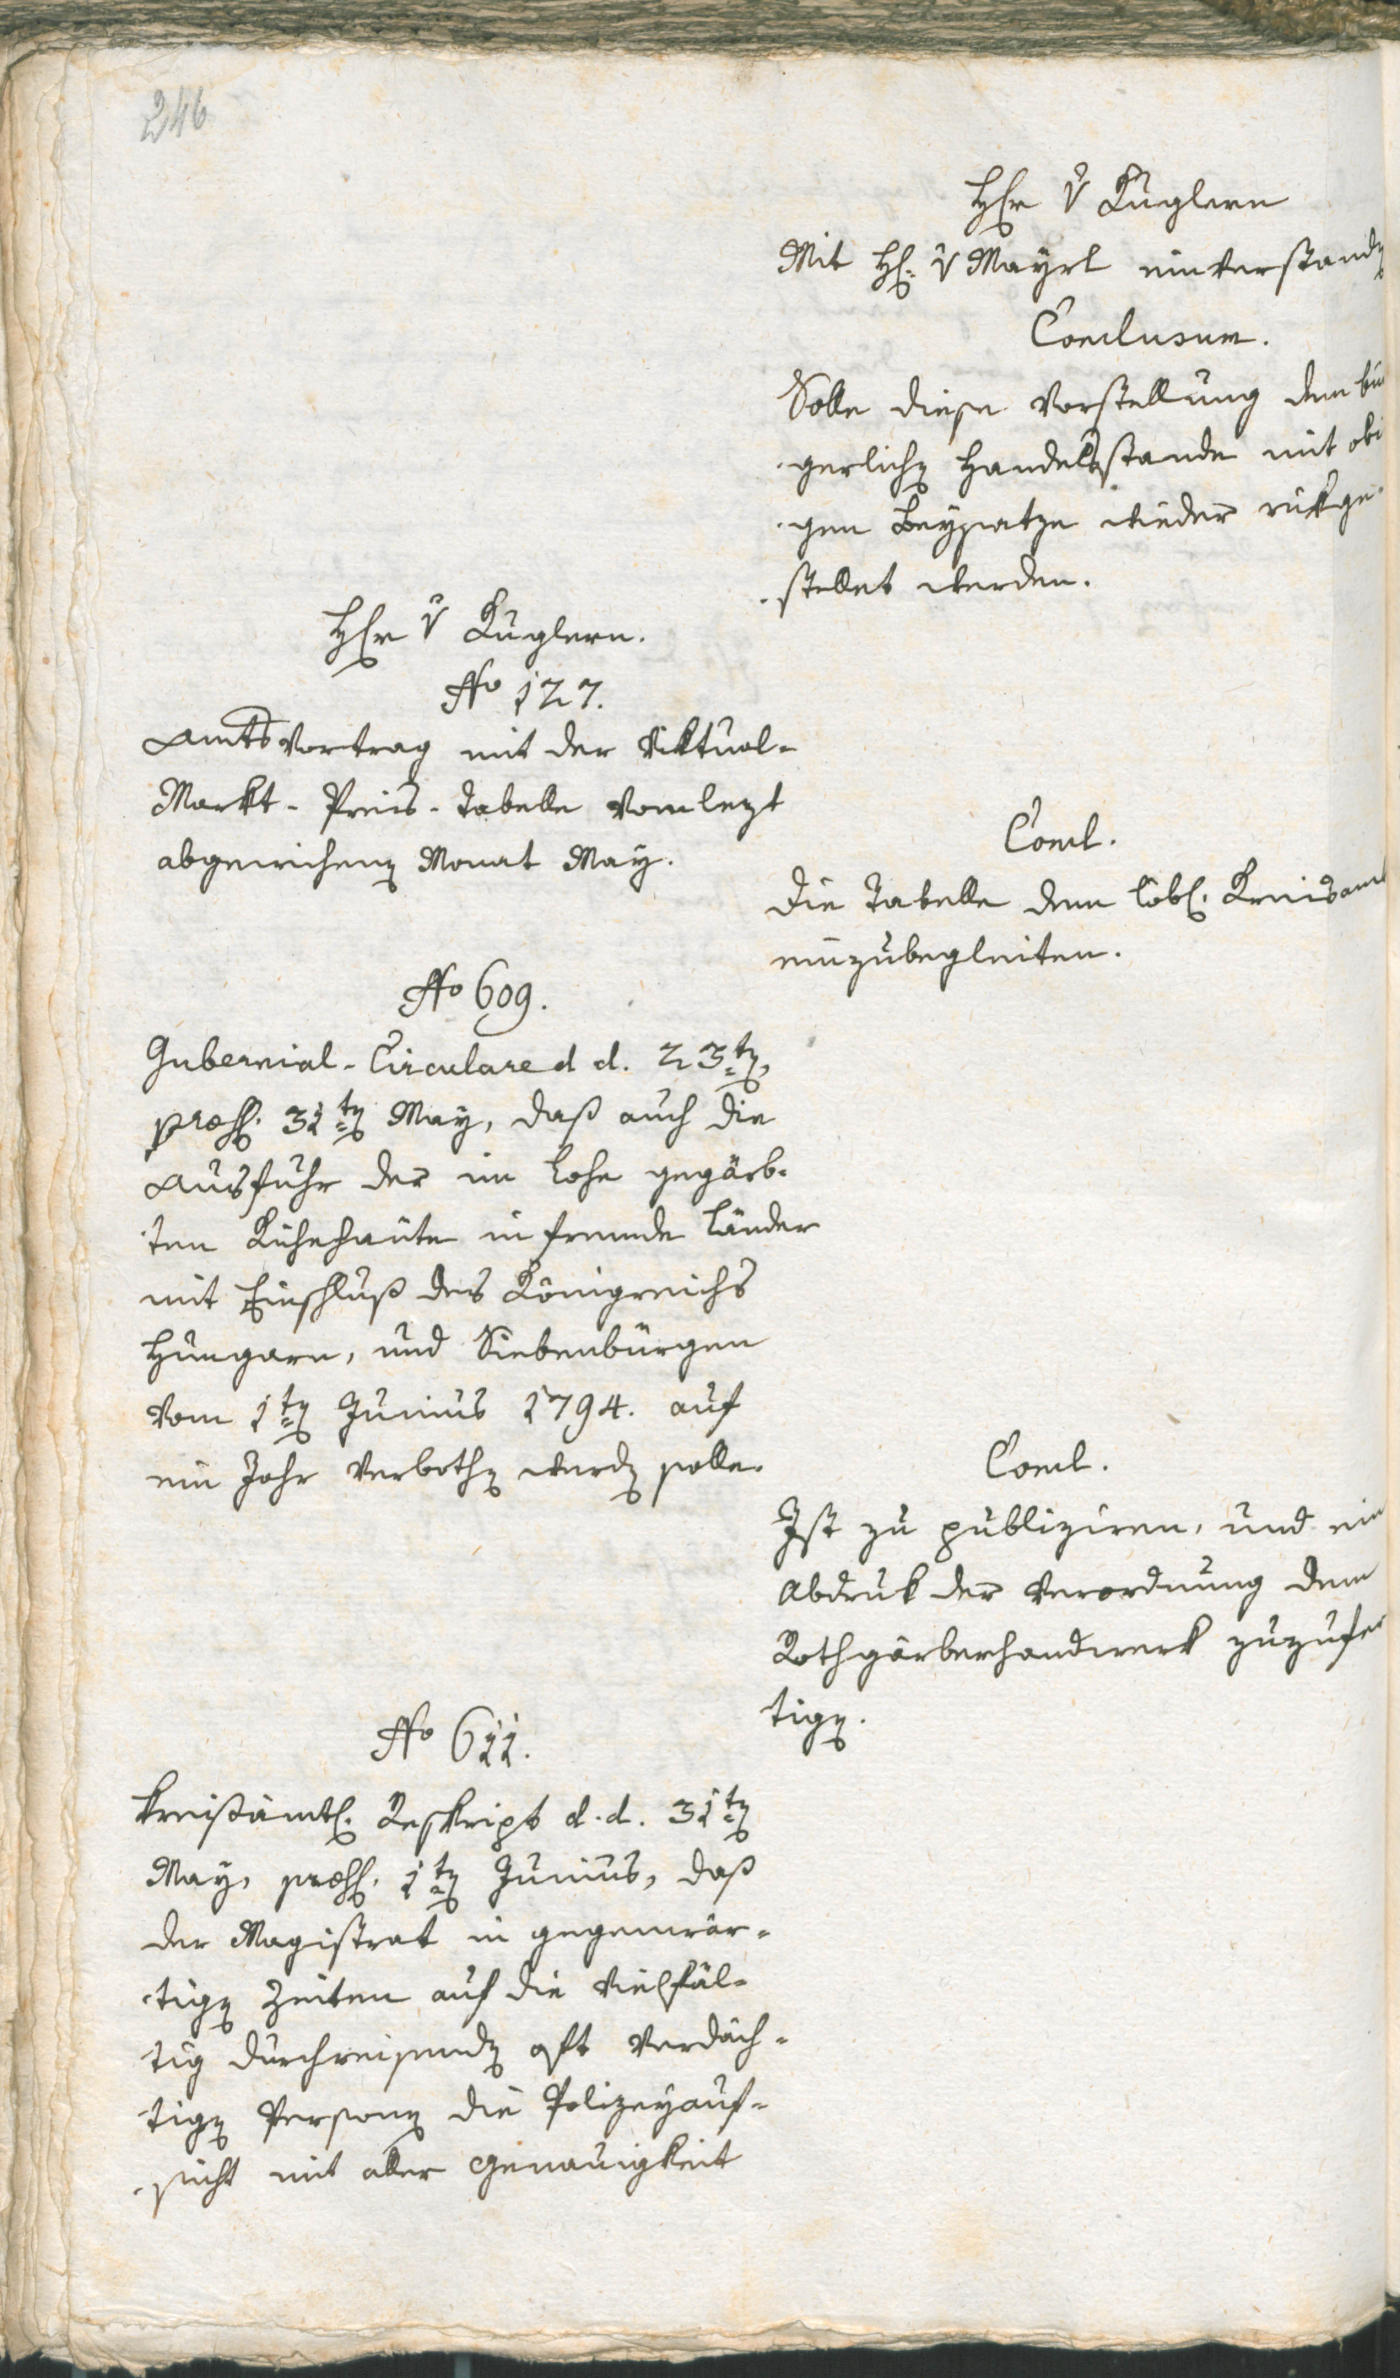 246
Hr v Kuglern
Mit H. v Mayrl einverstand
Conclusum.
Solle diese Vorstellung dem bür
gerlichen Handelsstande mit obi
gen Beysatze wieder rükge
stellet werden.
Hr v Kuglern.
No 127.
Amtsvortrag mit der Viktual-
Markt-Preis-Tabelle vom lezt
abgewichenen Monat May.
Concl.
Die Tabelle dem löbl. Kreisamt
einzubegleiten.
No 609.
Gubernial-Circulare d d. 23ten,
præs. 31ten May, daß auch die
Ausfuhr der im Lohe gegärb-
ten Kühehäute in fremde Länder
mit Einschluß des Königreichs
Hungarn, und Siebenbürgen
vom 1ten Junius 1794. auf
ein Jahr verbothen werden solle.
Concl.
Ist zu publiziren, und ein
Abdruk der Verordnung dem
Rothgärberhandwerk zuzufer
tigen.
No 611.
Kreißämtl. Reskript d. d. 31ten
May, præs. 1ten Junius, daß
der Magistrat in gegenwär-
tigen Zeiten auf die vielfäl-
tig durchreisenden oft verdäch-
tigen Personen die Polizeyauf-
sicht mit aller Genauigkeit